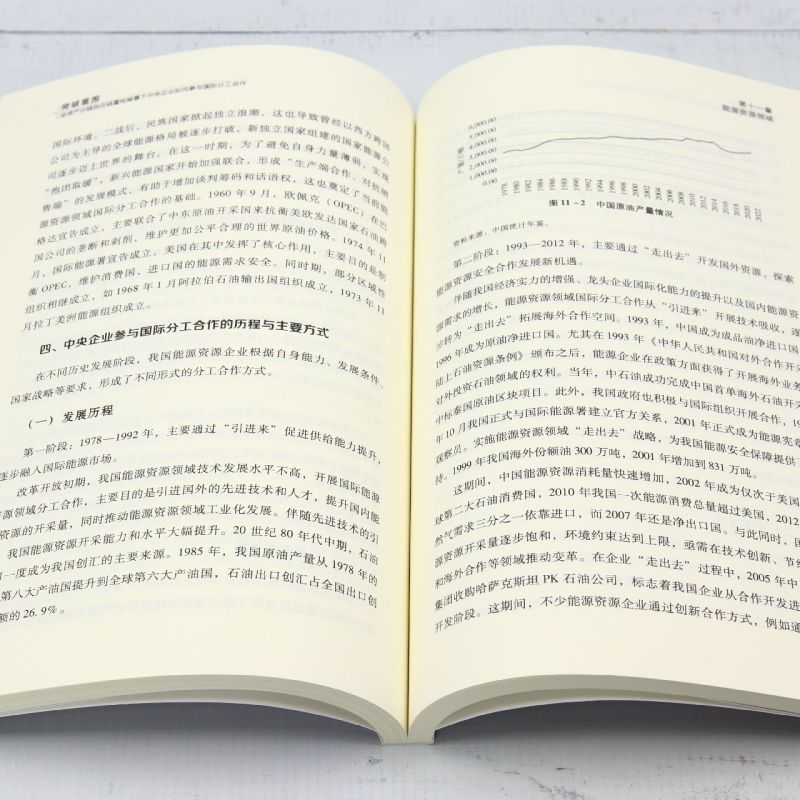 突破重围
全球产业链供应链重构背景下中央企业如何参与国际分工合作
国际环境。二战后，民族国家掀起独立浪潮，这也导致曾经以西方跨国
公司为主导的全球能源格局被逐步打破，新独立国家组建的国家能源公
司逐步迈上世界的舞台。在这一时期，为了避免自身力量薄弱，实现
“抱团取暖”，新兴能源国家开始加强联合，形成“生产端合作、对抗销
售端”的发展模式，有助于增加谈判筹码和话语权，这也奠定了当前能
源资源领域国际分工合作的基础。1960 年 9 月，欧佩克（OPEC）在巴
格达宣告成立，主要联合了中东原油开采国来抗衡美欧发达国家石油跨
国公司的垄断和剥削，维护更加公平合理的世界原油价格。1974 年 11
月，国际能源署宣告成立，美国在其中发挥了核心作用，主要目的是制
衡 OPEC，维护消费国、进口国的能源需求安全。同时期，部分区域性
组织相继成立，如 1968 年 1 月阿拉伯石油输出国组织成立，1973 年 11
月拉丁美洲能源组织成立。
四、中央企业参与国际分工合作的历程与主要方式
在不同历史发展阶段，我国能源资源企业根据自身能力、发展条件、
国家战略等要求，形成了不同形式的分工合作方式。
（一）发展历程
第一阶段：1978—1992 年，主要通过“引进来”促进供给能力提升，
逐步融入国际能源市场。
改革开放初期，我国能源资源领域技术发展水平不高，开展国际能源
资源领域分工合作，主要目的是引进国外的先进技术和人才，提升国内能
资源的开采量，同时推动能源资源领域工业化发展。伴随先进技术的引
我国能源资源开采能力和水平大幅提升。20 世纪 80 年代中期，石油
一度成为我国创汇的主要来源。1985 年，我国原油产量从 1978 年的
第八大产油国提升到全球第六大产油国，石油出口创汇占全国出口创
额的 26.9%。
第十一章
能源资源领域
6,000.00
5,000.00
4,000.00
3,000.00
2,000.00
1,000.00
0.00
1978 1980 1982 1984 1986 1988 1990 1992 1994 1996 1998 2000 2002 2004 2006 2008 2010 2012 2014 2016 2018 2020 2022
图 11-2 中国原油产量情况
资料来源：中国统计年鉴。
第二阶段：1993—2012 年，主要通过“走出去”开发国外资源，探索
能源资源安全合作发展新机遇。
伴随我国经济实力的增强、龙头企业国际化能力的提升以及国内能源资
源需求的增长，能源资源领域国际分工合作从“引进来”开展技术吸收，逐
步转为“走出去”拓展海外合作空间。1993 年，中国成为成品油净进口国，
1996 年成为原油净进口国。尤其在 1993 年《中华人民共和国对外合作开采
陆上石油资源条例》颁布之后，能源企业在政策方面获得了开展海外业务
对外投资石油领域的权利。当年，中石油成功完成中国首单海外石油开采
中标泰国原油区块项目。此外，我国政府也积极与国际组织开展合作，19
年 10 月我国正式与国际能源署建立官方关系，2001 年正式成为能源宪章
观察员。实施能源资源领域“走出去”战略，为我国能源安全保障提供了
持。1999 年我国海外份额油 300 万吨，2001 年增加到 831 万吨。
这期间，中国能源资源消耗量快速增加，2002 年成为仅次于美国
球第二大石油消费国，2010 年我国一次能源消费总量超过美国，2012
然气需求三分之一依靠进口，而 2007 年还是净出口国。与此同时，国
源资源开采量逐步饱和，环境约束达到上限，亟需在技术创新、节能
和海外合作等领域推动变革。在企业“走出去”过程中，2005 年中
集团收购哈萨克斯坦 PK 石油公司，标志着我国企业从合作开发进
开发阶段。这期间，不少能源资源企业通过创新合作方式，例如通